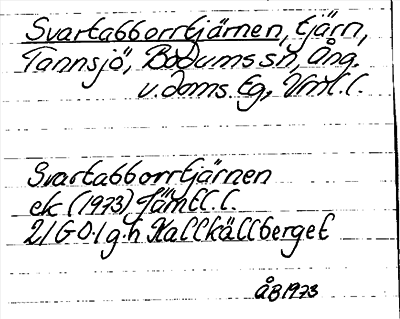 Svartabborrtjärnen, tjärn,
Tannsjö, Bodums sn, Ång.
v. doms. tg, Vnl. l.
Svartabborrtjärnen
ek (1973) Jämtl. l.
21 G 0-1 g-h Kallkällberget
ÅB 1973